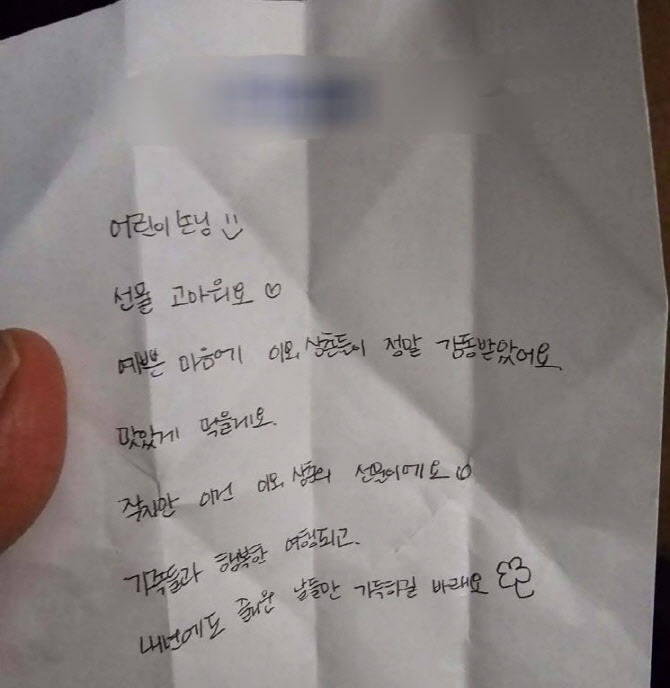 어린이 손님
선물 고마워요 ♡
예쁜 마음에 이모, 삼촌들이 정말 감동받았어요
맛있게 먹을게요.
작지만 이건 이모, 삼촌의 선물이에요
가족들과 행복한 여행되고.
내년에도 즐거운 날들만 가득하길 바래요